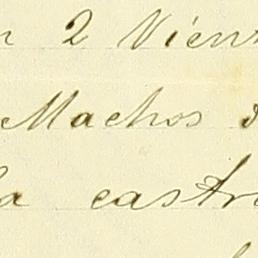 2 Vient
Machos
castr